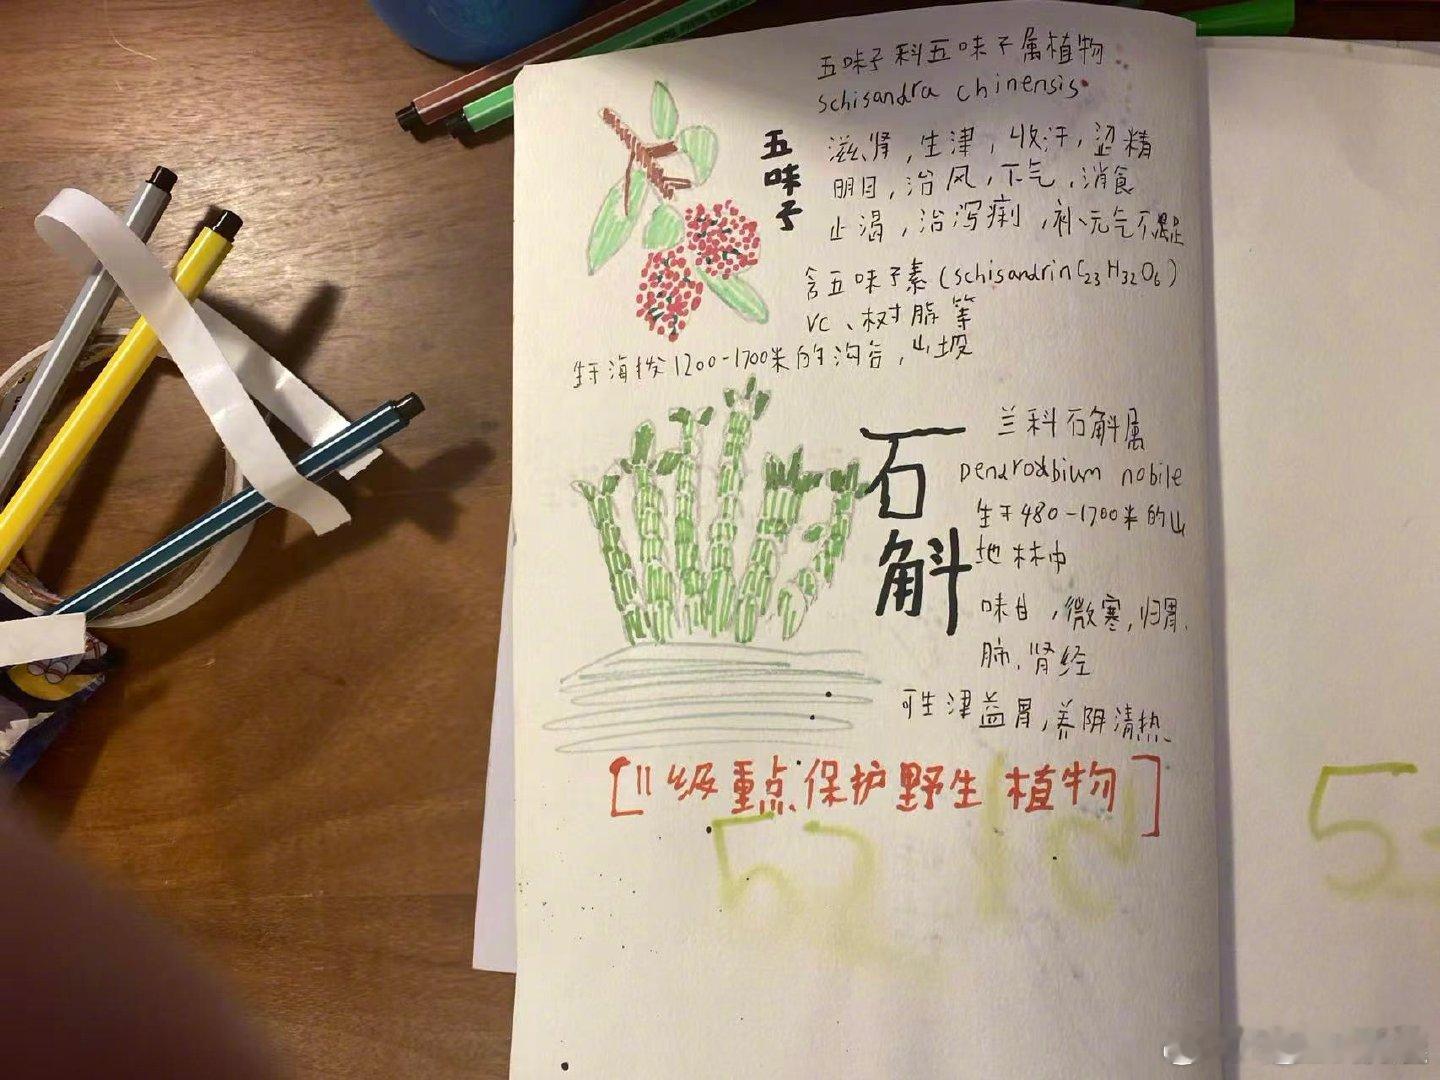 五味子科五味子属植物
schisandra chinensis
五味子
滋肾,生津,收汗,涩精
明目,治风,下气,消食
止渴,治泻痢,补元气不足
含五味子素(schisandrin C23H32O6)
VC、树脂等
生于海拔1200-1700米的沟谷,山坡
石斛
兰科石斛属
Dendrodbium nobile
生于480-1700米的山
地林中
味甘,微寒,归胃、
肺、肾经
可生津益胃,养阴清热、
[II级重点保护野生植物]
52